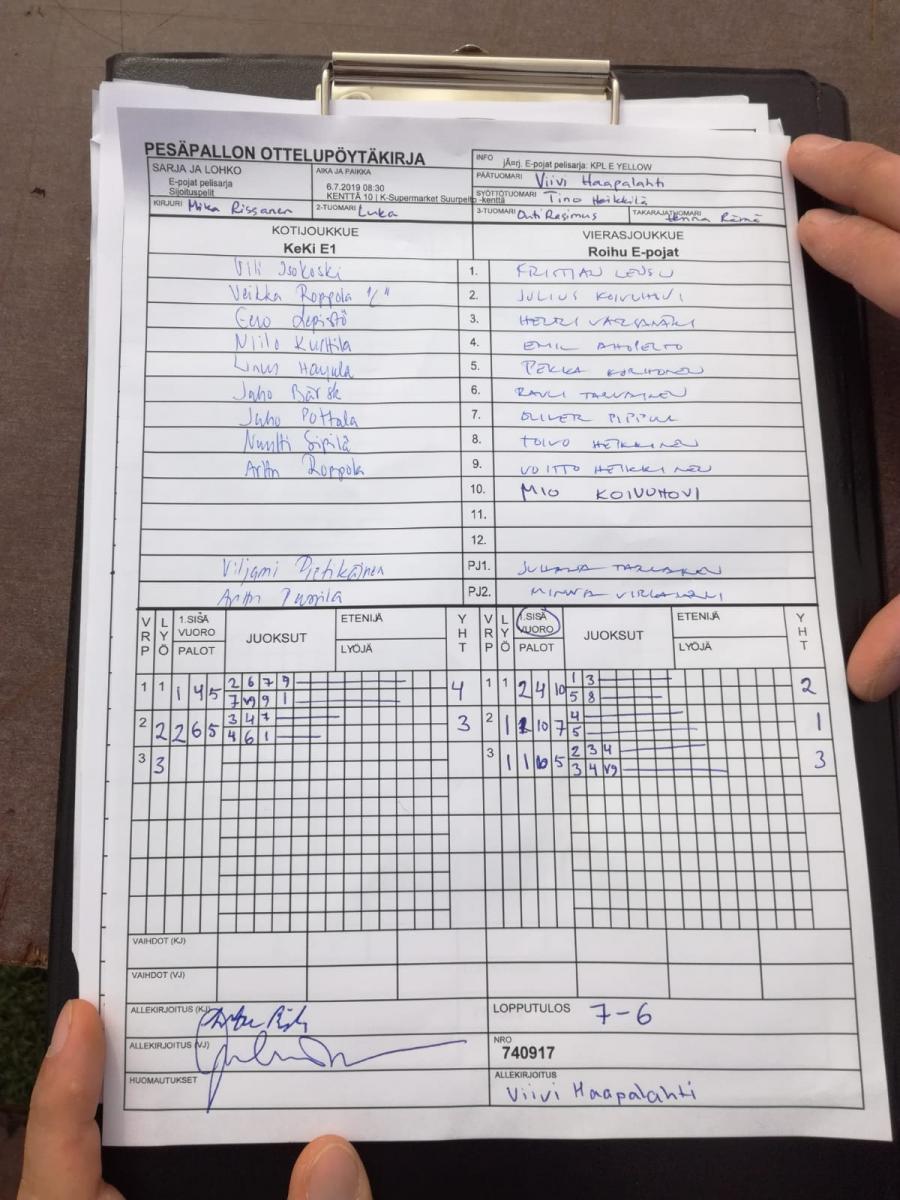 PESÄPALLON OTTELUPÖYTÄKIRJA
SARJA JA LOHKO
E-pojat pelisarja
Sijoituspelit
AIKA JA PAIKKA
6.7.2019 08:30
KENTTÄ 10 | K-Supermarket Suurpelto -kenttä
INFO
jÃ¤rj. E-pojat pelisarja: KPL E YELLOW
PÄÄTUOMARI Viivi Haapalahti
SYÖTTÖTUOMARI Tino Heikkilä
KIRJURI Mika Rissanen
2-TUOMARI Luka
3-TUOMARI Outi Rasimus
TAKARAJATUOMARI Henna Rämä
KOTIJOUKKUE
KeKi E1
VIERASJOUKKUE
Roihu E-pojat
Vili Isokoski 1. KRISTIAN
Veikka Roppola "C" 2. JULIUS KOIVUHOVI
Eero Lepistö 3. HENRI
Niilo Kurttila 4. EMIL
Linus 5. PEKKA KORHONEN
Juho Bärsk 6. RAULI TARVAINEN
Juho Pottala 7. OLIVER
Nuutti Sipilä 8. TOIVO HEIKKINEN
Artt Roppola 9. VOITTO HEIKKINEN
10. MIO KOIVUHOVI
11.
12.
Viljami Pietikäinen PJ1. JUHANA
Artt PJ2. MINNA
VRP LYÖ 1.SISÄ VUORO PALOT JUOKSUT ETENIJÄ LYÖJÄ YHT VRP LYÖ 1.SISÄ VUORO PALOT JUOKSUT ETENIJÄ LYÖJÄ YHT
1 1 1 4 5 2 6 7 9 4 1 1 2 4 10 1 3 2
7 V9 9 1 5 8
2 2 2 6 5 3 4 7 3 2 1 10 7 4 1
4 6 1 5
3 3 3 1 1 5 2 3 4 3
3 4 V9
VAIHDOT (KJ)
VAIHDOT (VJ)
ALLEKIRJOITUS (KJ)
LOPPUTULOS 7-6
ALLEKIRJOITUS (VJ)
NRO
740917
HUOMAUTUKSET
ALLEKIRJOITUS
Viivi Haapalahti